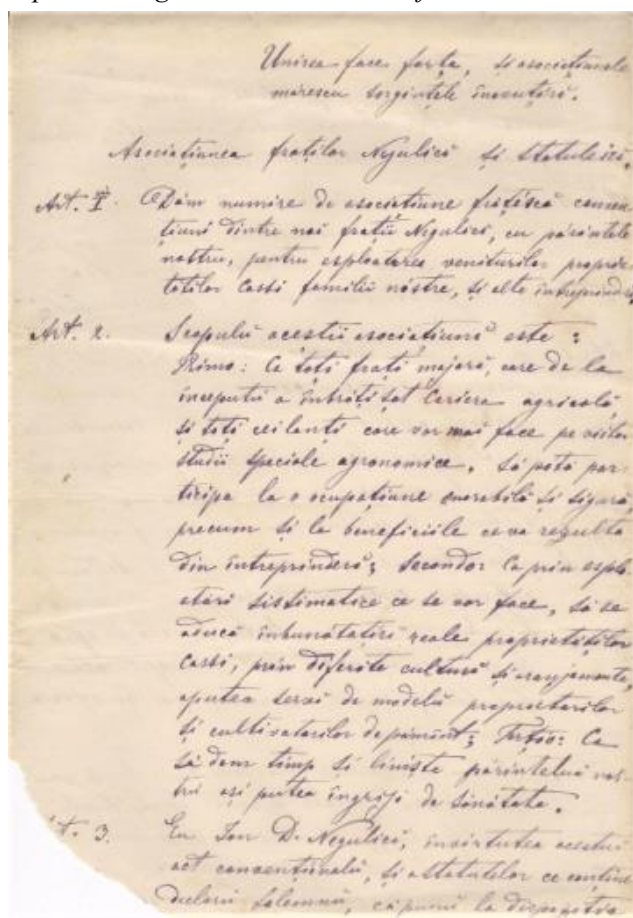 Unirea face forța, și asociațiunele
marescu sorgințele inavuțiri.
Asociațiunea fraților Negulici și statutele ei.
Art. I. Dăm numire de asociațiune frățéscă conven
țiuni dintre noi frații Negulici, cu părintele
nostru, pentru esploatarea veniturilor proprie
tăților cassi familii nóstre, și alte întreprinderi
Art. 2. Scopulŭ acestii asociațiuni este :
Primo: Ca toți frați majorĭ, care de la
începutŭ a îmbrățișat Cariera agricolă,
și toți ceilanți care vor mai face pe viitor
studii speciale agronomice, să pótă par-
ticipa la o ocupațiune onorabilă și sigură,
precum și la beneficiile ce va resulta
din întreprinderĭ; Secondo: Ca prin esplo-
atări sistimatice ce se vor face, să se
aducă înbunătățiri reale proprietăților
cassi, prin diferite culturĭ și aranjamente,
a putea servi de modelŭ proprietarilor
și cultivatorilor de pămĕnt; Terțio: Ca
să dăm timp și liniște părintelui nos-
tru așĭ putea îngriji de sănătate.
Art. 3. Eu Ion D. Negulici, în virtutea acestui
act convenționalŭ, și a statutelor ce conține
declarŭ solemnŭ, că punŭ la disposiția